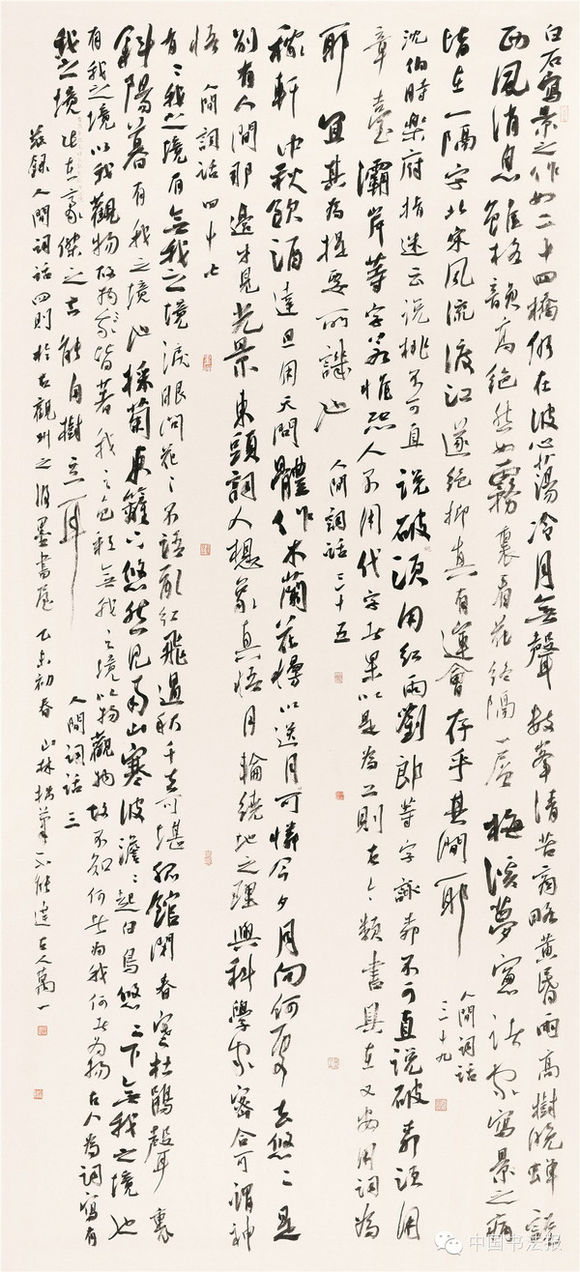 白石寫景之作如二十四橋仍在波心蕩冷月無聲數峯清苦商略黃昏雨高樹晚蟬說
西風消息雖格韻高絕然如霧裏看花終隔一層梅溪夢窗諸家寫景之病
皆在一隔字北宋風流渡江遂絕抑真有運會存乎其間耶
人間詞話
三十九
沈伯時樂府指迷云說桃不可直說破須用紅雨劉郎等字詠柳不可直說破柳須用
章臺灞岸等字若惟恐人不用代字者果以是為工則古今類書具在又安用詞為
耶宜其為提要所譏也 人間詞話 三十五
稼軒中秋飲酒達旦用天問體作木蘭花慢以送月可憐今夕月向何處去悠悠是
別有人間那邊才見光景東頭詞人想象直悟月輪繞地之理與科學家密合可謂神
悟 人間詞話 四十七
有有我之境有無我之境淚眼問花花不語亂紅飛過秋千去可堪孤館閉春寒杜鵑聲裏
斜陽暮有我之境也採菊東籬下悠然見南山寒波澹澹起白鳥悠悠下無我之境也
有我之境以我觀物故物皆著我之色彩無我之境以物觀物故不知何者為我何者為物古人為詞寫有
我之境 此在豪傑之士能自樹立耳 人間詞話 三
敬錄人間詞話四則於古觀州之墨書屋 乙未初春 山林拙筆不能達古人萬一
中国书法报